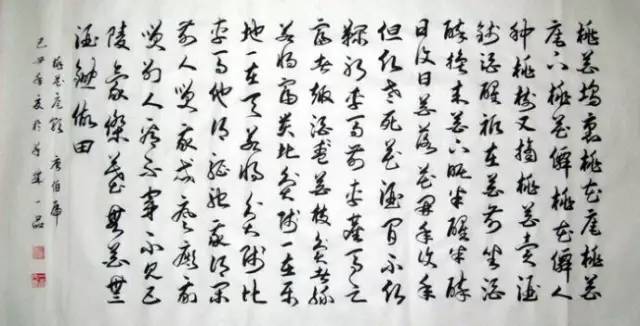 桃花塢裏桃花庵桃花
庵下桃花僊桃花僊人
種桃樹又摘桃花賣酒
錢酒醒祇在花前坐酒
醉換來花下眠半醒半醉
日復日花落花開年復年
但願老死花酒間不願
鞠躬車馬前車塵馬足
富者趣酒盞花枝貧者緣
若將富貴比貧賤一在平
地一在天若將貧賤比
車馬他得驅馳我得閑
別人笑我忒瘋癲我
笑別人看不穿不見五
陵豪傑墓無花無
酒鋤作田
桃花庵歌 唐伯虎
己丑年夏於
一品